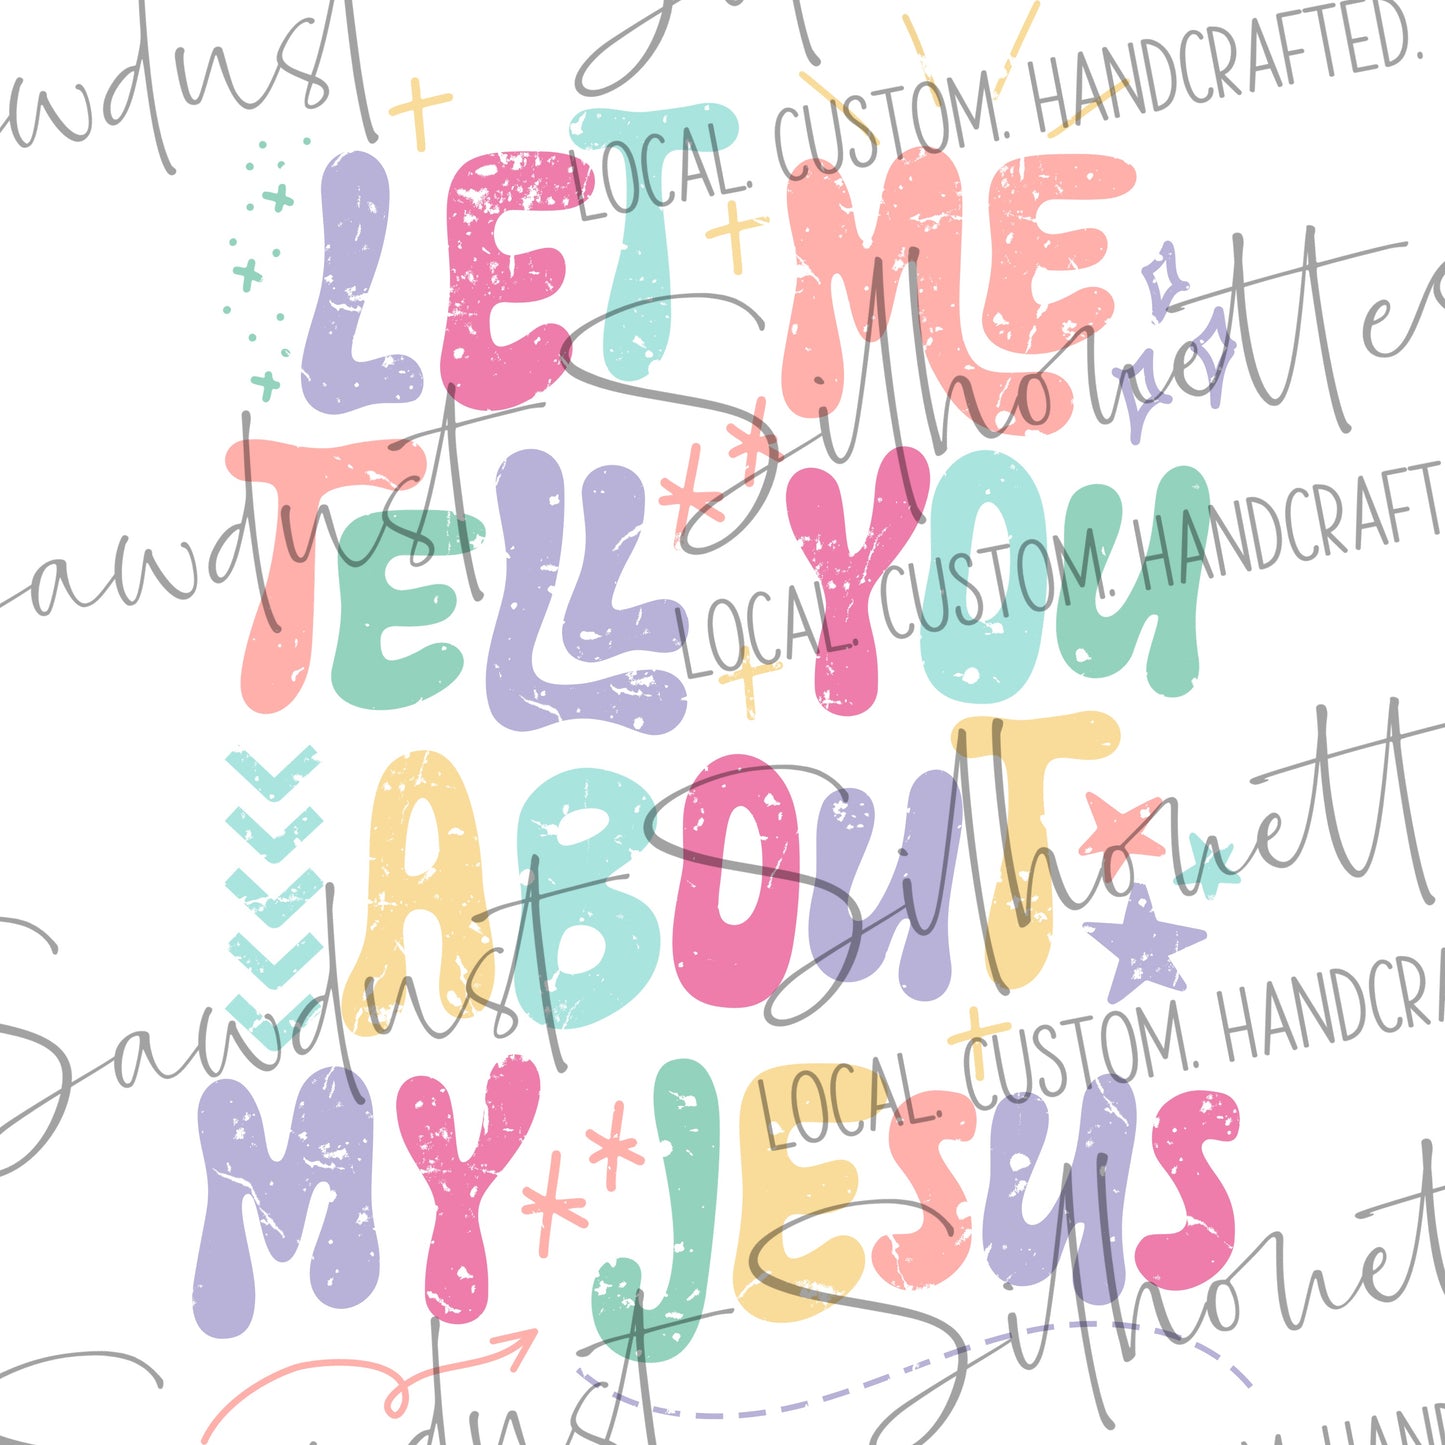 Sawdust Silhouettes
LOCAL. CUSTOM. HANDCRAFTED.
LET ME
Sawdust Silhouettes
TELL YOU
LOCAL. CUSTOM. HANDCRAFT
ABOUT
Sawdust Silhouett
MY JESUS
LOCAL. CUSTOM. HANDCRA
Sawdust Silhouet
LOCAL. CUSTOM. HAND